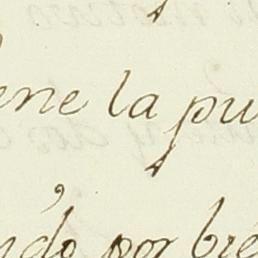 ene la pu
ndo por bre